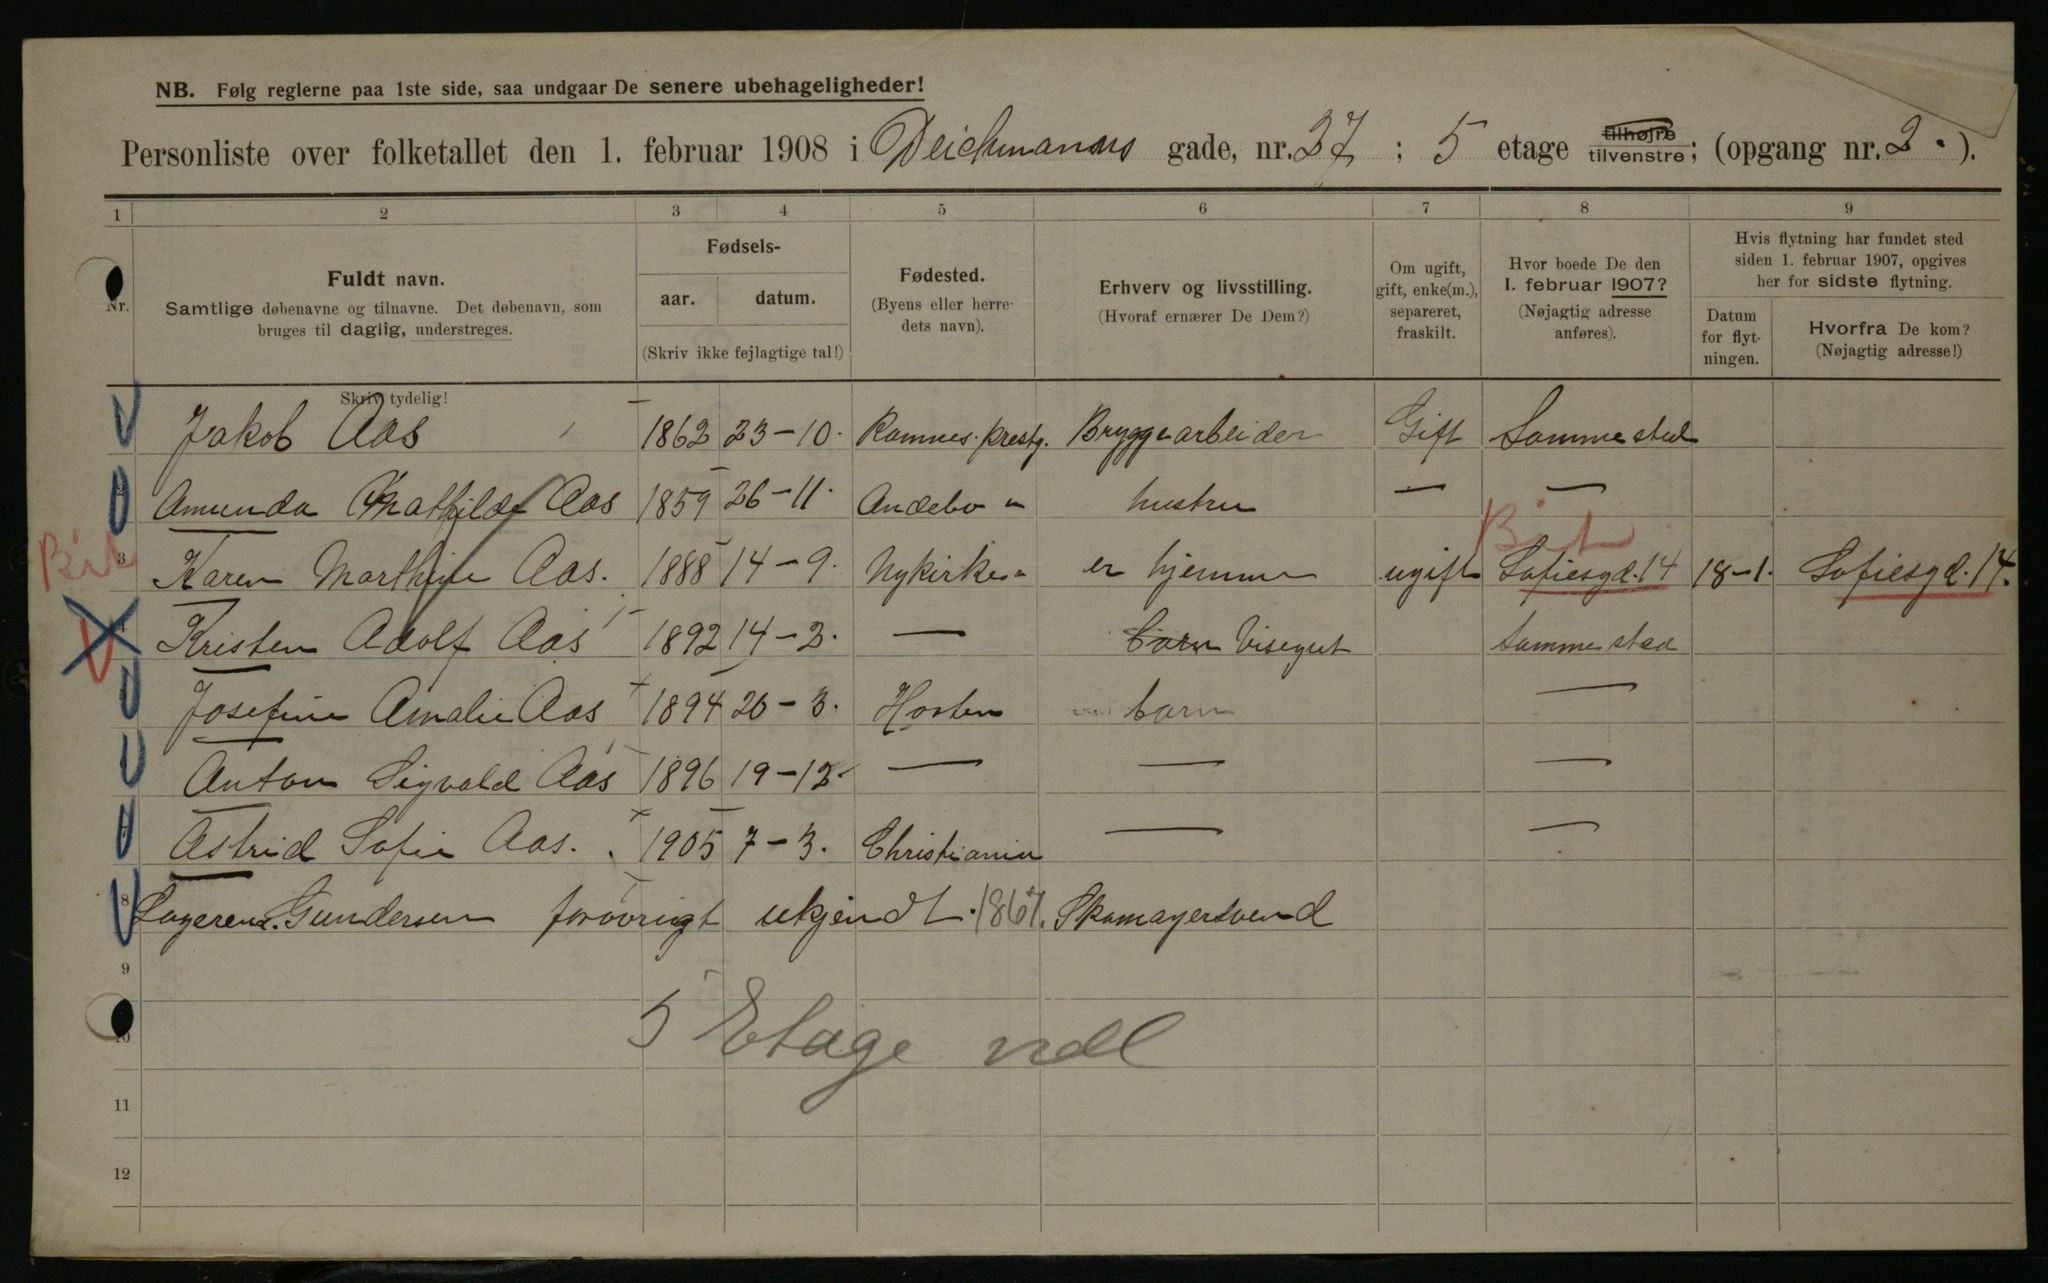 NB. Følg reglerne paa 1ste side, saa undgaar De senere ubehageligheder!
Personliste over folketallet den 1. februar 1908 i Deichmanns gade, nr. 27 ; 5 etage tilhøjre tilvenstre; (opgang nr. 2.).
1 2 3 4 5 6 7 8 9
Nr.
Fuldt navn.
Samtlige døbenavne og tilnavne. Det døbenavn, som
bruges til daglig, understreges.
Skriv tydelig!
Fødsels-
aar. datum.
(Skriv ikke fejlagtige tal!)
Fødested.
(Byens eller herre-
dets navn).
Erhverv og livsstilling.
(Hvoraf ernærer De Dem?)
Om ugift,
gift, enke(m.),
separeret,
fraskilt.
Hvor boede De den
1. februar 1907?
(Nøjagtig adresse
anføres).
Hvis flytning har fundet sted
siden 1. februar 1907, opgives
her for sidste flytning.
Datum
for flyt-
ningen.
Hvorfra De kom?
(Nøjagtig adresse!)
Jakob Aas 1862 23-10. Ramnes. prestg. Bryggearbeider Gift Sammested
2 Amunda Mathilde Aas 1859 26-11. Andebo " hustru — —
Bit Bit
3 Karen Marthine Aas. 1888 14-9. Nykirke " er hjemme ugift Sofiesgd. 14 18-1. Sofiesgd. 14.
4 Kristen Adolf Aas 1892 14-2. — barn Visegut Samme sted
Josefine Amalie Aas 1894 20-3. Horten barn —
Anton Sigvald Aas 1896 19-12. — — —
Astrid Sofie Aas. 1905 7-3. Christiania — —
8 Logerend. Gundersen forøvrigt ukjendt. 1867. Skomagersvend
9
5 Etage
10
11
12